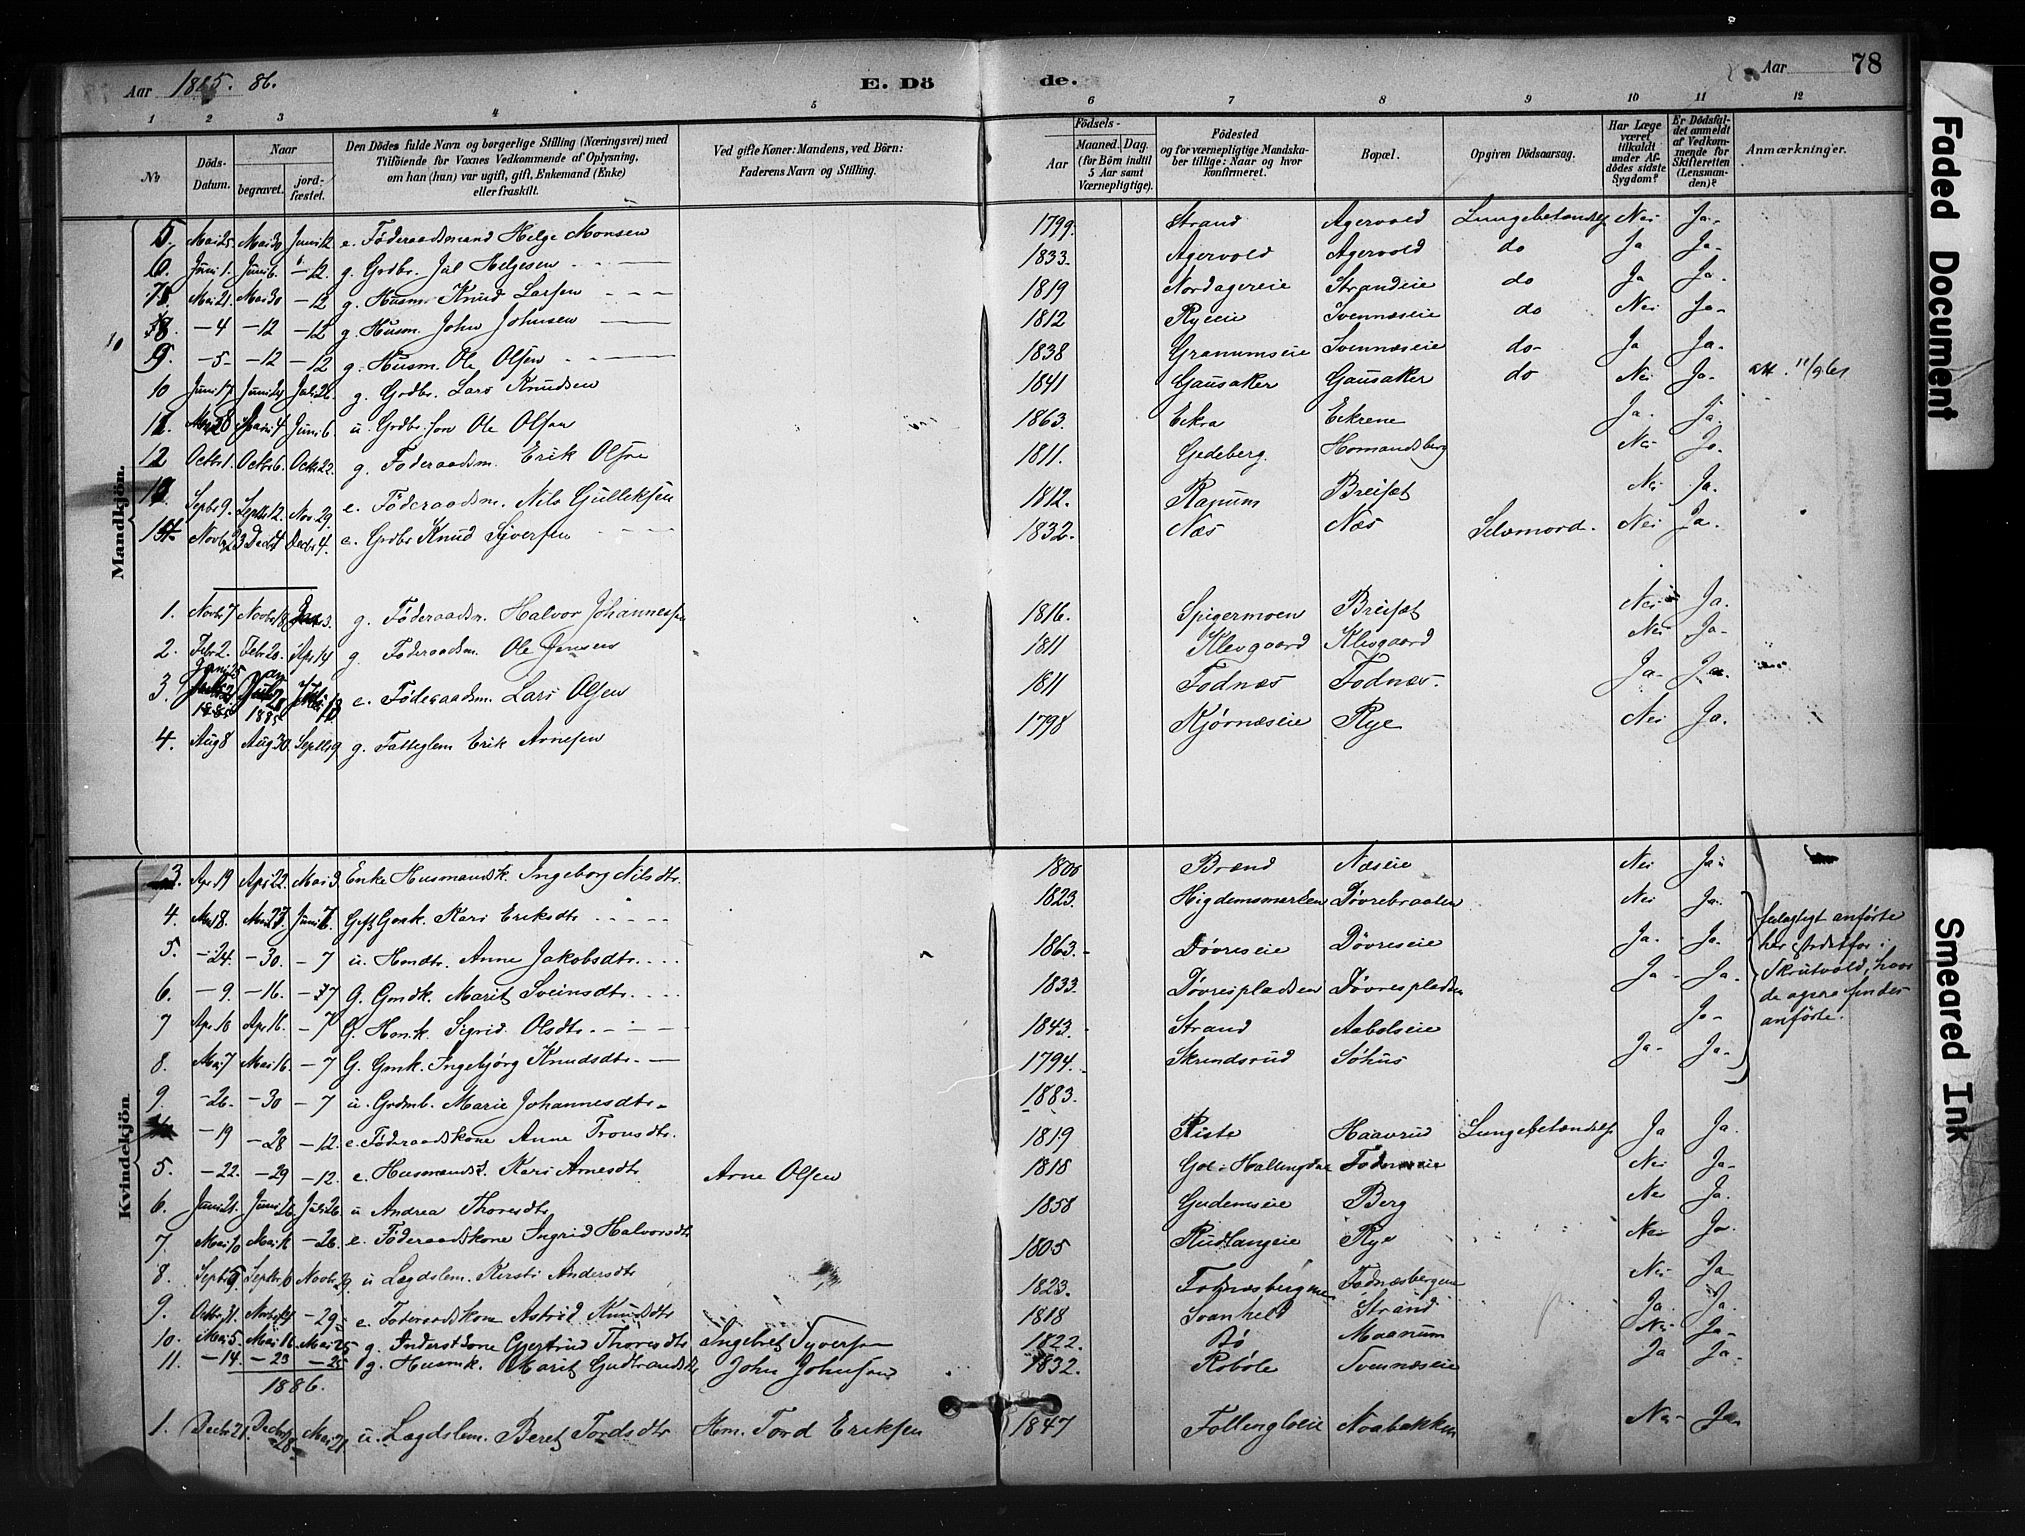 Aar 1885. 86.
E. Dö
de.
Aar
78
1 2 3 4 5 6 7 8 9 10 11 12
No
Döds-Datum.
Naar
begravet.
jordfæstet.
Den Dödes fulde Navn og borgerlige Stilling (Næringsvei) med Tilföiende for Voxnes Vedkommende af Oplysning, om han (hun) var ugift, gift, Enkemand (Enke) eller fraskilt.
Ved gifte Koner: Mandens, ved Börn: Faderens Navn og Stilling.
Födsels-
Aar
Maaned. Dag.
(for Börn indtil 5 Aar samt Værnepligtige).
Födested og for værnepligtige Mandskaber tillige: Naar og hvor konfirmeret.
Bopæl.
Opgiven Dödsaarsag.
Har Læge været tilkaldt under Afdödes sidste Sygdom?
Er Dödsfaldet anmeldt af Vedkommende for Skifteretten (Lensmanden)?
Anmærkninger.
Mandkjön.
5. Mai 25 Mai 30 Juni 12 e. Föderaadsmand Helge Monsen 1799. Strand Agervold Lungebetændelse Nei Ja.
6. Juni 1. Juni 6. -12. g. Grdbr. Jal Helgesen 1833. Agervold Agervold do Ja Ja.
7. Mai 21. Mai 30 -12 g. Husm. Knud Larsen 1819 Nordagereie Strandeie do Ja Ja.
8. -4 -12 -12 g. Husm. John Johnsen 1812 Ryeeie Svennæseie do Nei Ja.
9. -5- -12 -12 g. Husm. Ole Olsen 1838 Granumseie Svennæseie do- Ja Ja.
10 Juni 17 Juni 24 Juli 26. g. Grdbr. Lars Knudsen 1841 Gausaker Gausaker do Nei Ja. att. 11/9 61
11. 28 4 Juni 6 u. Grdbr. søn Ole Olsen 1863. Eckra Eckrene Ja. Ja.
12 Octbr 1. Octbr 6. Octbr 22. g. Föderaadsm. Erik Olsen 1811. Gedeberg. Homandsberg Nei Ja.
13 Septbr 9. Septbr 12. Nov. 29. e. Föderaadsm. Nils Gulleksen 1812. Ranum Breiset Nei Ja.
14. Novbr 23 Decbr 4 Decbr 4. e. Grdbr Knud Syversen 1832. Næs Næs Selvmord. Nei Ja.
1. Novbr 7 Novbr 18 3. g. Föderaadsm. Halvor Johannessen 1816. Spigermoen Breiset Nei Ja.
2. Febr 2. Febr 20. Apr 14 g. Föderaadsm. Ole Jensen 1811 Klevgaard Klevgaard Nei Ja-
3. 1885 1885 e. Föderaadsm. Lars Olsen 1811 Fodnæs Fodnæs. Ja- Ja.
4. Aug 8 Aug 30. Septbr 9 g. Fattiglem Erik Arnesen 1798 Kjørnæseie Rye Nei Ja.
Kvindekjön.
3. Apr 19 Apr 22. Mai 3. Enke Husmandsk. Ingeborg Nilsdtr. 1806 Brænd Næseie Nei Ja-
4. Mai 8. Mai 23 Juni 7. Gift Gmk. Kari Eriksdtr 1823. Higdemsmarken Døvrebraaten Nei Ja.
5. -24. -30. -7 u. Hmdtr. Anne Jakobsdtr. 1863.- Døvreseie Døvreseie Ja- Ja.
6. -9. -16. -7 G. Gmdk. Marit Sveinsdtr. 1833. Døvrespladsen Døvrespladsen Ja- Ja-
7 Apr 10 Apr 16. -7 G. Hmk. Sigrid Olsdtr. 1843. Strand Aabolseie Ja-
8. Mai 7 Mai 16. -7 G. Gmk. Ingebjørg Knudsdtr. 1794. Skrindsrud Søhus Ja- Ja-
9. -26. -30 -7 u. Grdmb. Marie Johannesdtr. 1883.
fulagligt anførte her istedetfor i Skrutvold, hvor de ogsaa findes anførte.
-19 -28 -12. e. Föderaadskone Anne Tronsdtr. 1819 Riste Haavrud Lungebetændelse Ja Ja.
5. -22. -29 -12. e. Husmandsk. Kari Arnesdtr Arne Olsen 1818 Gol i Hallingdal Fodnæseie Nei Ja-
6. Juni 21. Juni 26. Juli 26 u Andrea Thoresdtr. 1858 Gudemseie Berg Nei Ja.
7. Mai 10 Mai -26. e. Föderaadskone Ingrid Halvorsdtr 1805 Rudlangeie Rye Nei Ja.
8. Septbr Septbr 6 Novbr 29. u Lægdslem. Kersti Andersdtr 1823. Fodnæsbergene Fodnæsbergene Nei Ja-
9. Octbr 31. Novbr 14 -29. e. Föderaadskone Astrid Knudsdtr 1818 Svanheld Strand Ja. Ja.
10. Mai 5. Mai 16 Mai 25 g. Inderstkone Gjertrud Thoresdtr Ingebret Syversen 1822. Bø Maanum Nei Ja-
11. -14. -23 -25 g. Husmk. Marit Gudbrandsdtr John Johnsen 1832. Robøle Svennæseie Ja Ja-
1886.
1. Decbr 21. Decbr 28. Mai 21 u. Lægdslem. Beret Tordsdtr Hm. Tord Eriksen 1847 Follengloeie Noabakken Nei- Ja-
Faded Document
Smeared Ink